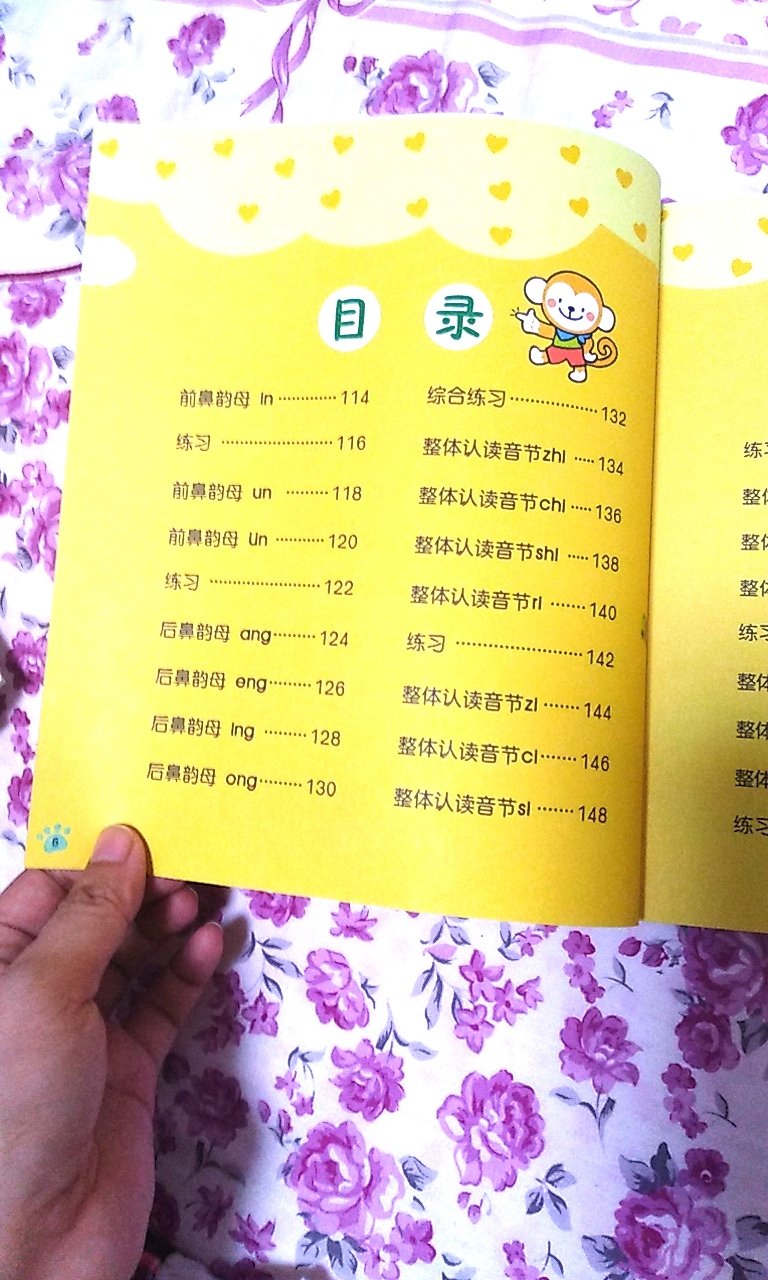 目 录
前鼻韵母 in ············· 114
练习 ························ 116
前鼻韵母 un ········· 118
前鼻韵母 ün ··········· 120
练习 ························ 122
后鼻韵母 ang ········· 124
后鼻韵母 eng ········· 126
后鼻韵母 ing ········· 128
后鼻韵母 ong ········· 130
综合练习 ·················· 132
整体认读音节zhi ····· 134
整体认读音节chi ····· 136
整体认读音节shi ····· 138
整体认读音节ri ······· 140
练习 ························ 142
整体认读音节zi ······· 144
整体认读音节ci ······· 146
整体认读音节si ······· 148
6
练习
整体
整体
整体
练习
整体
整体
整体
练习